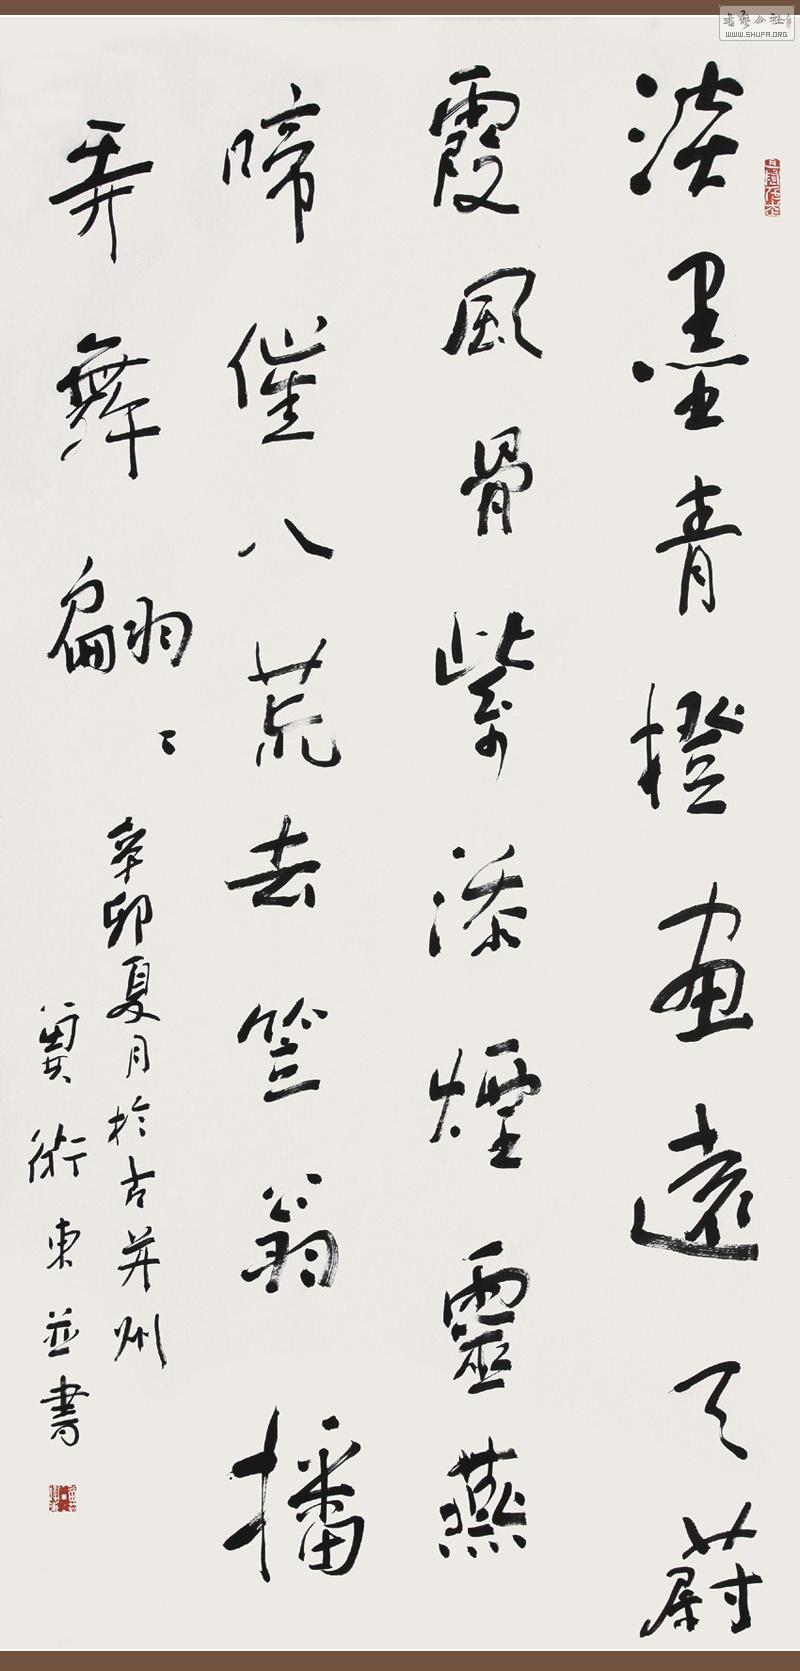 淡墨青橙画遠天蔚
霞風骨紫添煙靈燕
啼催八荒去笠翁播
弄舞翩〻
辛卯夏月於古并州
冀術東並書
書藝公社
WWW.SHUFA.ORG